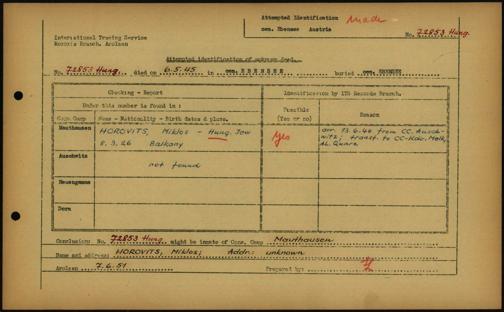 Attempted Identification made
cem. Ebensee Austria
International Tracing Service
Records Branch, Arolsen
No. 72853 Hung.
Attempted identification of unknown dead.
No. 72853 Hung. died on 6.5.45 in cem. EBENSEE buried cem. EBENSEE
Checking - Report
Identification by ITS Records Branch.
Under this number is found in :
Possible (Yes or no)
Reason
Conc. Camp Name - Nationality - Birth dates & place.
Mauthausen HOROVITS, Miklos - Hung. Jew
8.3.26 Balkany
Yes
arr. 13.6.44 from CC. Ausch-
witz; transf. to CC-Kdo. Melk,
AL. Quarz
Auschwitz
not found
Neuengamme
Dora
Conclusion: No. 72853 Hung. might be inmate of Conc. Camp Mauthausen
Name and address: HOROVITS, Miklos; Addr: unknown
Arolsen 7.6.51 Prepared by: